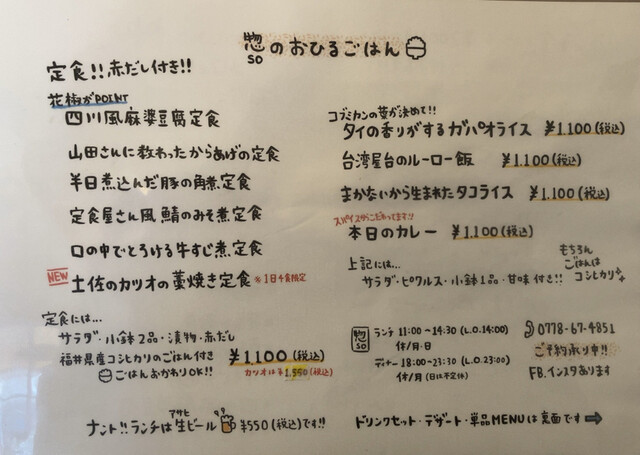 惣 so のおひるごはん
定食!! 赤だし付き!!
花椒がPOINT
四川風麻婆豆腐定食
山田さんに教わったからあげの定食
半日煮込んだ豚の角煮定食
定食屋さん風鯖のみそ煮定食
口の中でとろける牛すじ煮定食
NEW 土佐のカツオの藁焼き定食 ※1日4食限定
定食には…
サラダ・小鉢2品・漬物・赤だし
福井県産コシヒカリのごはん付き
ごはんおかわりOK!!
¥1100(税込)
カツオは¥1,550(税込)
ナント!!ランチは生ビール ¥550(税込)です!!
アサヒ
コブミカンの葉が決めて!!
タイの香りがするガパオライス ¥1.100(税込)
台湾屋台のルーロー飯 ¥1.100(税込)
まかないから生まれたタコライス ¥1.100(税込)
スパイスからこだわってます!!
本日のカレー ¥1.100(税込)
上記には…
サラダ・ピクルス・小鉢1品・甘味付き!!
もちろん
ごはんは
コシヒカリ
惣 so
ランチ 11:00~14:30 (L.O.14:00)
休/月・日
ディナー 18:00~23:30 (L.O.23:00)
休/月 (日は不定休)
0778-67-4851
ご予約承り中!!
FB.インスタあります
ドリンクセット・デザート・単品MENUは裏面です➡